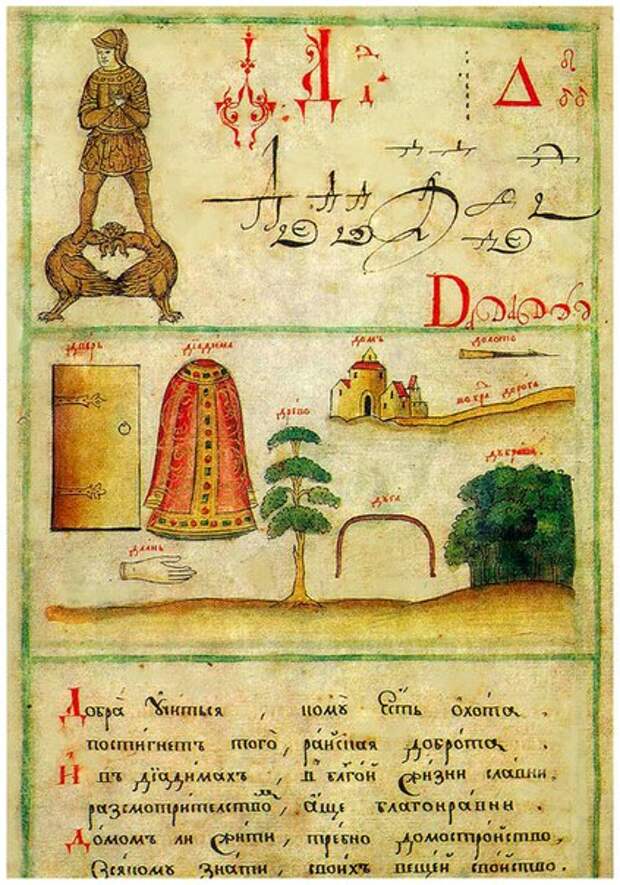 Д Д Δ
D
две́рь дїадима домъ долото
древо дорога
дꙋга дꙋбрава
длань
Добра̀ ᲂу҆чи́тьсѧ , комꙋ̀ Е҆сть ѻ҆хота .
постигнетъ того̀ , ра́йскаѧ доброта .
И҆ въ дїадимахъ , в бл҃гой жизни славни .
разсмотрителство , а҆ще благонравни .
До́момъ ли жити , требно домостройство ,
Всѧкомꙋ знати , своихъ вещей свойство .